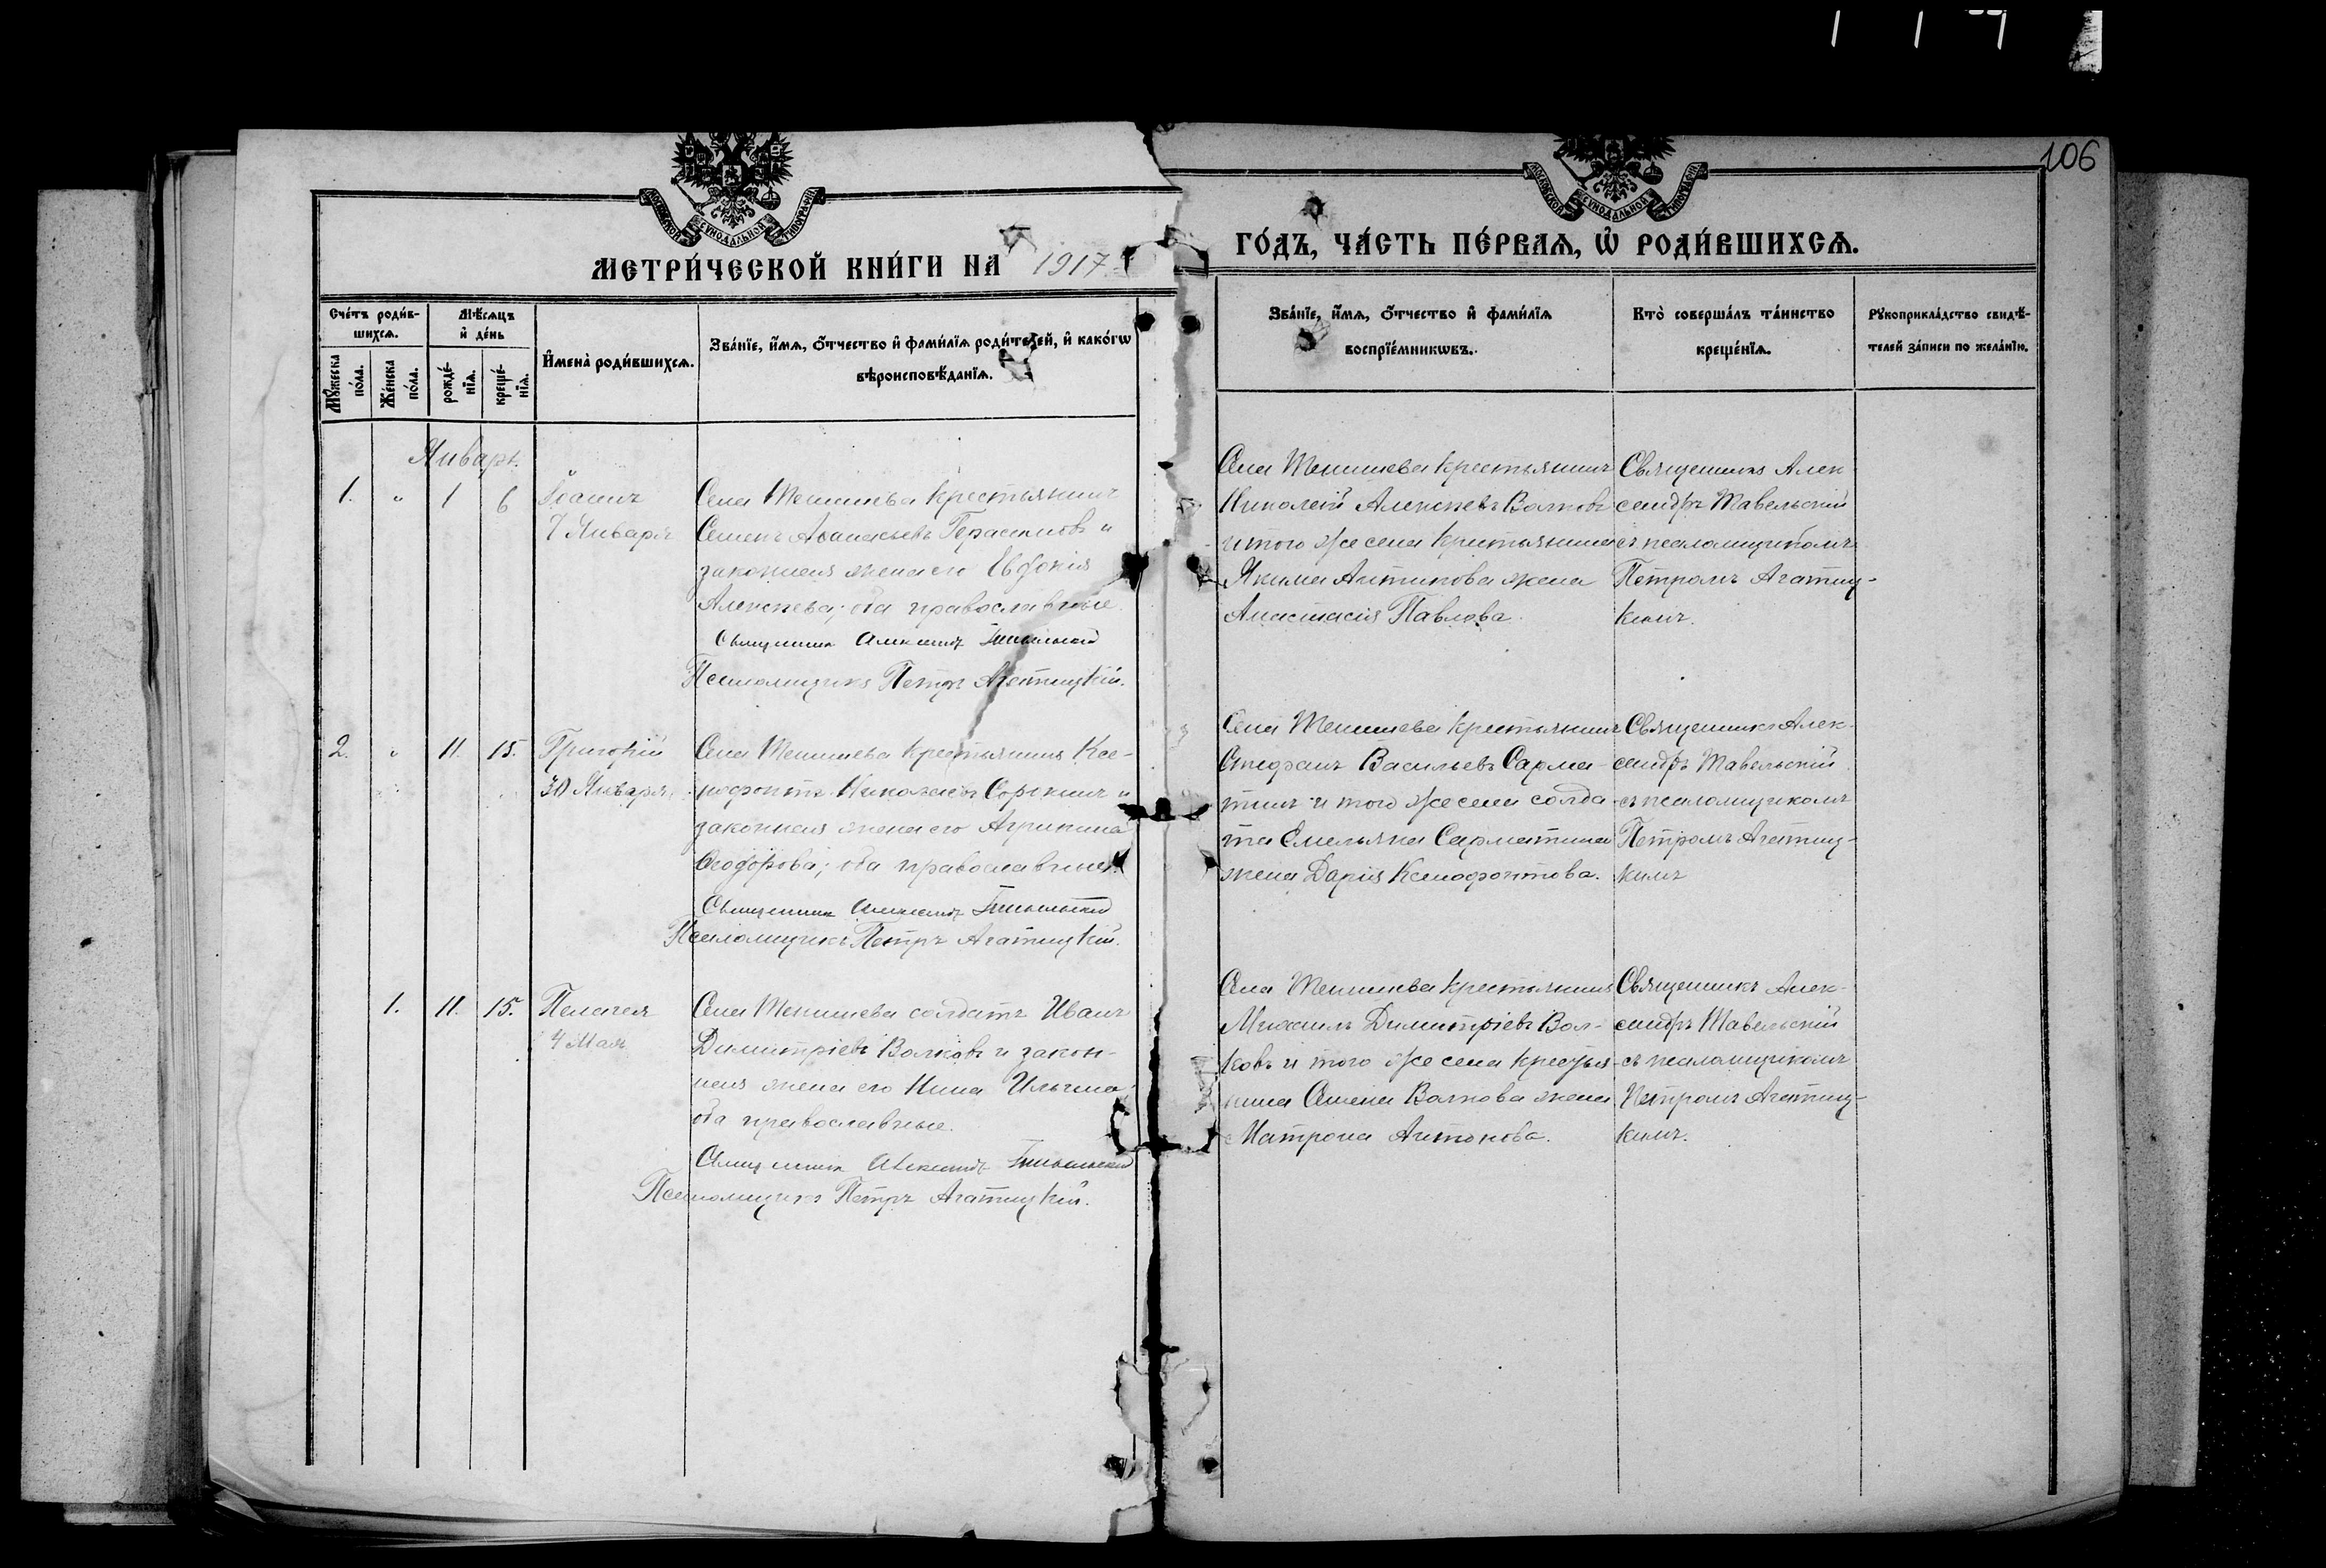 106
МЕТРИ́ЧЕСКОЙ КНИ́ГИ НА 1917
ГО́ДЪ, ЧА́СТЬ ПЕ́РВАѦ, Ѡ҆ РОДИ́ВШИХСѦ.
Сче́тъ роди́в-
шихсѧ.
Мꙋ́жеска
по́ла.
Же́нска
по́ла.
Мѣ́сѧцъ
и҆ де́нь
рожде́-
нїѧ.
креще́-
нїѧ.
И҆мена̀ роди́вшихсѧ.
Зва́нїе, и҆́мѧ, ѻ҆́тчество и҆ фами́лїѧ роди́телей, и҆ како́гѡ
вѣроисповѣ́данїѧ.
Зва́нїе, и҆́мѧ, ѻ҆́тчество и҆ фами́лїѧ
воспрїе́мникѡвъ.
Кто̀ соверша́лъ та́инство
креще́нїѧ.
Рꙋкоприкла́дство свидѣ́-
телей за́писи по жела́нїю.
Январь.
1. " 1 6
Іоаннъ
7 Января
Села Тенишева крестьянинъ
Семенъ Аѳанасьевъ Герасимовъ и
законная жена его Евдокія
Алексѣева; оба православные.
Священникъ Александръ Тавельскій
Псаломщикъ Петръ Агатицкій.
Села Тенишева крестьянинъ
Николай Алексѣевъ Волковъ
и того же села крестьянина
Якима Антипова жена
Анастасія Павлова.
Священникъ Алек
сандръ Тавельскій
съ псаломщикомъ
Петромъ Агатиц-
кимъ.
2. " 11. 15.
Григорій
30 Января
Села Тенишева крестьянинъ Ксе-
нофонтъ Николаевъ Сорокинъ и
законная жена его Агрипина
Ѳеодорова; оба православные.
Священникъ Александръ Тавельскій
Псаломщикъ Петръ Агатицкій.
Села Тенишева крестьянинъ
Стефанъ Васильевъ Сарма-
тинъ и того же села солда-
та Емельяна Сарматина
жена Дарія Ксенофонтова.
Священникъ Алек-
сандръ Тавельскій
съ псаломщикомъ
Петромъ Агатиц-
кимъ
1. 11. 15.
Пелагея
4 Мая
Села Тенишева солдатъ Иванъ
Димитріевъ Волковъ и закон-
ная жена его Нина Ильина
оба православные.
Священникъ Александръ Тавельскій
Псаломщикъ Петръ Агатицкій.
Села Тенишева крестьянинъ
Михаилъ Димитріевъ Вол-
ковъ и того же села крестья-
нина Семена Волкова жена
Матрона Антонова.
Священникъ Алек-
сандръ Тавельскій
съ псаломщикомъ
Петромъ Агатиц-
кимъ.